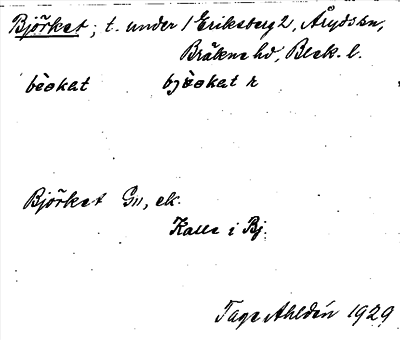 Björket; t. under 1 Eriksberg 2, Åryds sn,
Bräkne hd, Blek. l.
bèskat bjèskat r
Björket Gn, ek.
Kalle i Bj.
Tage Ahldén 1929